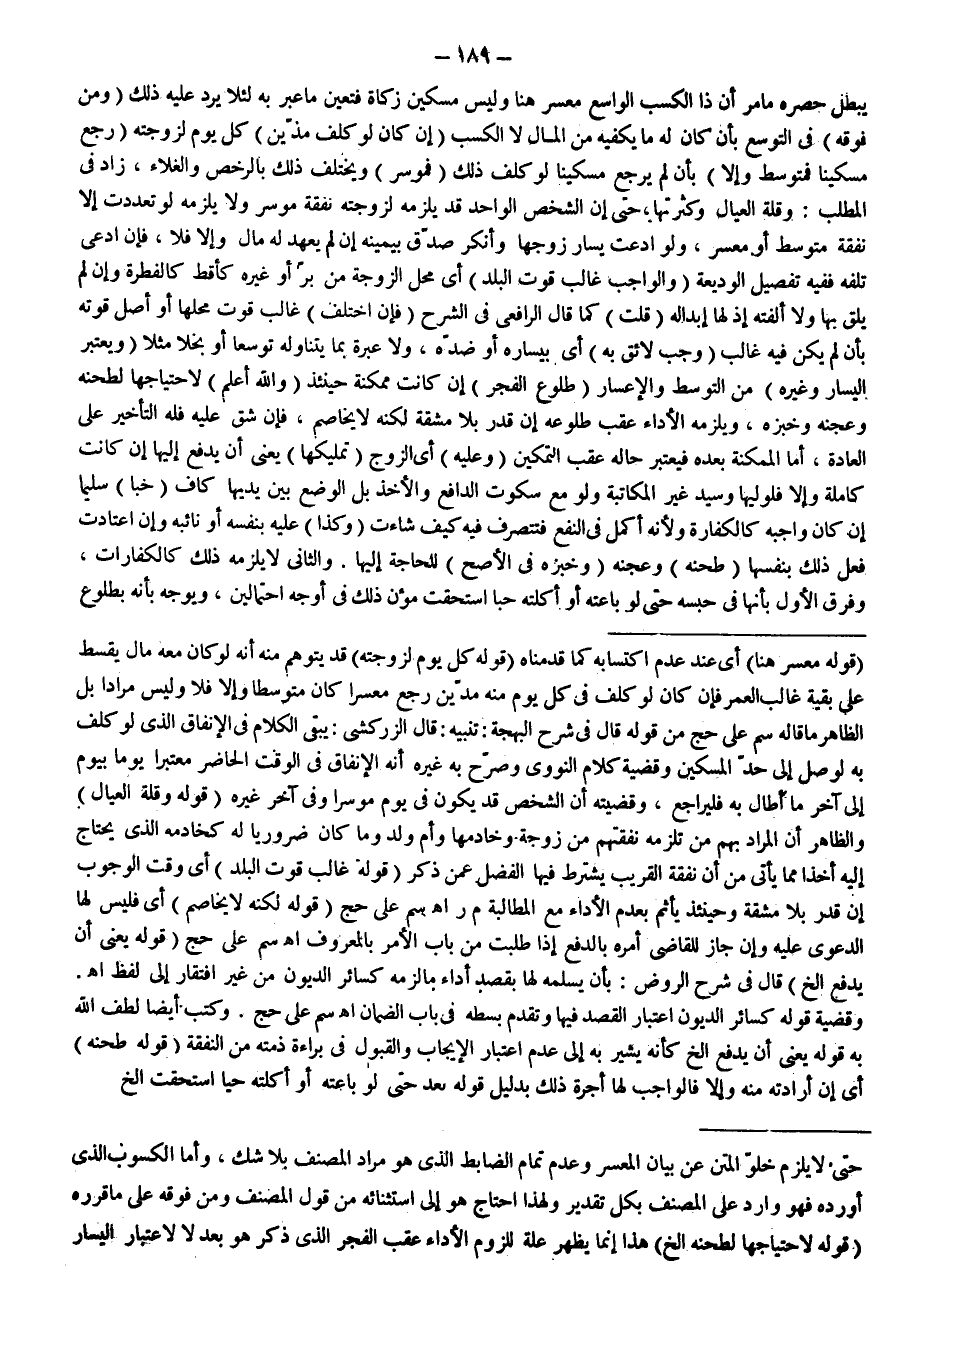 – ١٨٩ –
يبطل حصره مامر أن ذا الكسب الواسع معسر هنا وليس مسكين زكاة فتعين ماعبر به لئلا يرد عليه ذلك ( ومن
فوقه ) فى التوسع بأن كان له مايكفيه من المال لا الكسب ( إن كان لو كلف مدّين ) كل يوم لزوجته ( رجع
مسكينا فمتوسط وإلا ) بأن لم يرجع مسكينا لو كلف ذلك ( فموسر ) ويختلف ذلك بالرخص والغلاء ، زاد فى
المطلب : وقلة العيال وكثرتها،حتى إن الشخص الواحد قد يلزمه لزوجته نفقة موسر ولا يلزمه لو تعددت إلا
نفقة متوسط أو معسر ، ولو ادعت يسار زوجها وأنكر صدّق بيمينه إن لم يعهد له مال وإلا فلا ، فإن ادعى
تلفه ففيه تفصيل الوديعة ( والواجب غالب قوت البلد ) أى محل الزوجة من برّ أو غيره كأقط كالفطرة وإن لم
يلق بها ولا ألفته إذ لها إبداله ( قلت ) كما قال الرافعى فى الشرح ( فإن اختلف ) غالب قوت محلها أو أصل قوته
بأن لم يكن فيه غالب ( وجب لائق به ) أى بيساره أو ضدّه ، ولا عبرة بما يتناوله توسعا أو بخلا مثلا ( ويعتبر
اليسار وغيره ) من التوسط والإعسار ( طلوع الفجر ) إن كانت ممكنة حينئذ ( والله أعلم ) لاحتياجها لطحنه
وعجنه وخبزه ، ويلزمه الأداء عقب طلوعه إن قدر بلا مشقة لكنه لايخاصم ، فإن شق عليه فله التأخير على
العادة ، أما الممكنة بعده فيعتبر حاله عقب التمكين ( وعليه ) أى الزوج ( تمليكها ) يعنى أن يدفع إليها إن كانت
كاملة وإلا فلوليها وسيد غير المكاتبة ولو مع سكوت الدافع والأخذ بل الوضع بين يديها كاف ( حبا ) سليما
إن كان واجبه كالكفارة ولأنه أكمل فى النفع فتتصرف فيه كيف شاءت ( وكذا ) عليه بنفسه أو نائبه وإن اعتادت
فعل ذلك بنفسها ( طحنه ) وعجنه ( وخبزه فى الأصح ) للحاجة إليها . والثانى لايلزمه ذلك كالكفارات ،
وفرق الأول بأنها فى حبسه حتى لو باعته أو أكلته حبا استحقت مؤن ذلك فى أوجه احتمالين ، ويوجه بأنه بطلوع
(قوله معسر هنا) أى عند عدم اكتسابه كما قدمناه (قوله كل يوم لزوجته) قد يتوهم منه أنه لوكان معه مال يقسط
على بقية غالب العمر فإن كان لو كلف فى كل يوم منه مدّين رجع معسرا كان متوسطا وإلا فلا وليس مرادا بل
الظاهر ماقاله سم على حج من قوله قال فى شرح البهجة : تنبيه : قال الزركشى : يبقى الكلام فى الإنفاق الذى لو كلف
به لوصل إلى حدّ المسكين وقضية كلام النووى وصرّح به غيره أنه الإنفاق فى الوقت الحاضر معتبرا يوما بيوم
إلى آخر ما أطال به فليراجع ، وقضيته أن الشخص قد يكون فى يوم موسرا وفى آخر غيره ( قوله وقلة العيال )
والظاهر أن المراد بهم من تلزمه نفقتهم من زوجة وخادمها وأم ولد وما كان ضروريا له كخادمه الذى يحتاج
إليه أخذا مما يأتى من أن نفقة القريب يشترط فيها الفضل عمن ذكر ( قوله غالب قوت البلد ) أى وقت الوجوب
إن قدر بلا مشقة وحينئذ يأثم بعدم الأداء مع المطالبة م ر اه سم على حج ( قوله لكنه لايخاصم ) أى فليس لها
الدعوى عليه وإن جاز للقاضى أمره بالدفع إذا طلبت من باب الأمر بالمعروف اه سم على حج ( قوله يعنى أن
يدفع الخ ) قال فى شرح الروض : بأن يسلمه لها بقصد أداء مالزمه كسائر الديون من غير افتقار إلى لفظ اه .
وقضية قوله كسائر الديون اعتبار القصد فيها وتقدم بسطه فى باب الضمان اه سم على حج . وكتب أيضا لطف الله
به قوله يعنى أن يدفع الخ كأنه يشير به إلى عدم اعتبار الإيجاب والقبول فى براءة ذمته من النفقة ( قوله طحنه )
أى إن أرادته منه وإلا فالواجب لها أجرة ذلك بدليل قوله بعد حتى لو باعته أو أكلته حبا استحقت الخ
حتى لايلزم خلوّ المتن عن بيان المعسر وعدم تمام الضابط الذى هو مراد المصنف بلا شك ، وأما الكسوب الذى
أورده فهو وارد على المصنف بكل تقدير ولهذا احتاج هو إلى استثنائه من قول المصنف ومن فوقه على ماقرره
( قوله لاحتياجها لطحنه الخ) هذا إنما يظهر علة للزوم الأداء عقب الفجر الذى ذكر هو بعد لا لاعتبار اليسار